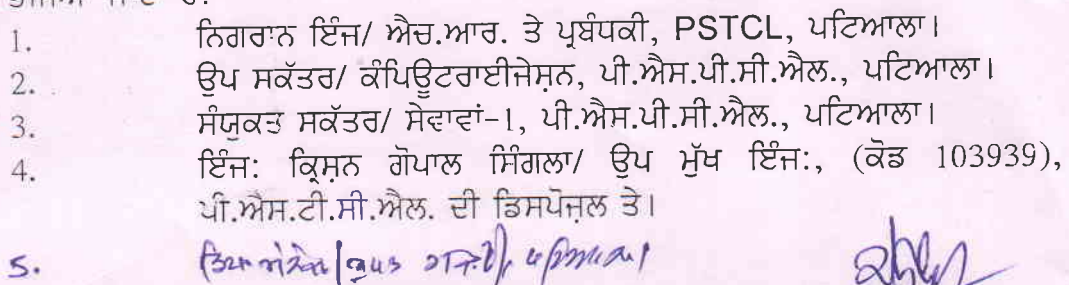 1. ਨਿਗਰਾਨ ਇੰਜ/ ਐਚ.ਆਰ. ਤੇ ਪ੍ਰਬੰਧਕੀ, PSTCL, ਪਟਿਆਲਾ।
2. ਉਪ ਸਕੱਤਰ/ ਕੰਪਿਊਟਰਾਈਜੇਸ਼ਨ, ਪੀ.ਐਸ.ਪੀ.ਸੀ.ਐਲ., ਪਟਿਆਲਾ।
3. ਸੰਯੁਕਤ ਸਕੱਤਰ/ ਸੇਵਾਵਾਂ-1, ਪੀ.ਐਸ.ਪੀ.ਸੀ.ਐਲ., ਪਟਿਆਲਾ।
4. ਇੰਜ: ਕ੍ਰਿਸ਼ਨ ਗੋਪਾਲ ਸਿੰਗਲਾ/ ਉਪ ਮੁੱਖ ਇੰਜ:, (ਕੋਡ 103939),
ਪੀ.ਐਸ.ਟੀ.ਸੀ.ਐਲ. ਦੀ ਡਿਸਪੋਜ਼ਲ ਤੇ।
5.